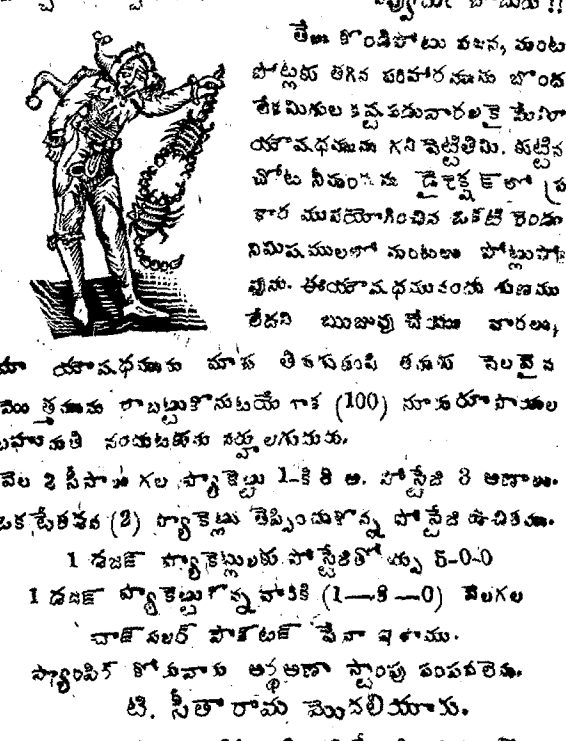 తేలు కొండిపోటు వలన, మంట
పోట్లకు తగిన పరిహారమును బొంద
లేకమిగుల కష్టపడువారలకై మేమీ
యౌషధమును గని పెట్టితిమి. కుట్టిన
చోట డైరెక్షన్ లో ప్ర
కార ముపయోగించిన ఒకటి రెండు
నిమిషములలో మంటలు పోట్లుపో
వును. ఈయౌషధమునందు గుణము
లేదని ఋజువు చేయు వారలు,
మా యౌషధమును మాకు తన సెలవైన
మొత్తమును రాబట్టుకొనుటయే గాక (100) నూరురూపాయల
బహుమతి నందుటకును నర్హులగుదురు.
వెల 2 సీసాలు గల ప్యాకెట్టు 1-కి 8 అ. పోస్టేజి 3 అణాలు.
ఒక పేరవద (2) ప్యాకెట్లు తెప్పించుకొన్న పోస్టేజి ఉచితము.
1 డజన్ ప్యాకెట్టులకు పోస్టేజితో 5-0-0
1 డజన్ ప్యాకెట్టు కొన్నవారికి (1—8—0) వెలగల
పౌంటెన్ పేనా ఇనాము.
స్యాంపిల్ కోరువారు అర్థఅణా స్టాంపు పంపవలెను.
టి. సీతారామ మొదలియారు.